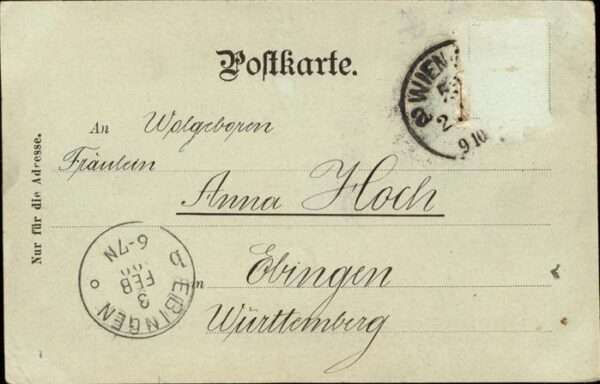 Postkarte.
WIEN
2
9 10
An Wolgeboren
Fräulein
Anna Hoch
in Ebingen
Württemberg
Nur für die Adresse.
EBINGEN
3
FEB
6-7N